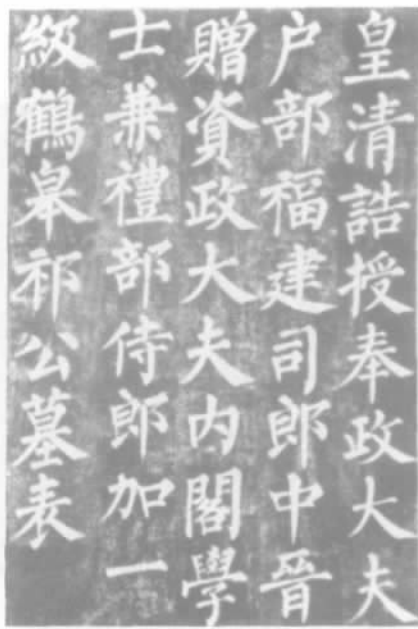 皇清誥授奉政大夫
户部福建司郎中晉
贈資政大夫内閣學
士兼禮部侍郎加一
級鶴皋祁公墓表